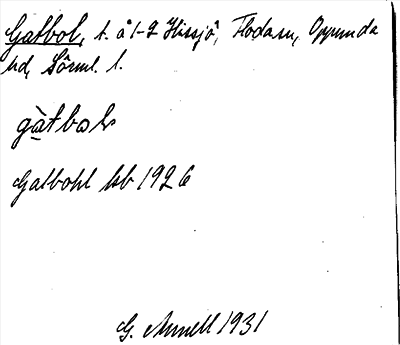 Gatbol, t. å 1-2 Hissjö, Flodasn, Oppunda
hd, Sörml. l.
gàtboḷ
Gatbohl kb 1926
G. Annell 1931